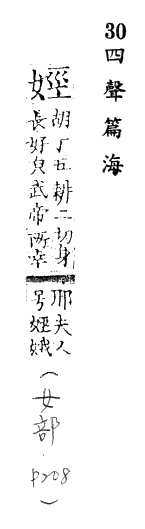 30四聲篇海
娙
胡丁五耕二切身
長好皃武帝所幸
邢夫人
号娙娥
(女部 P208)